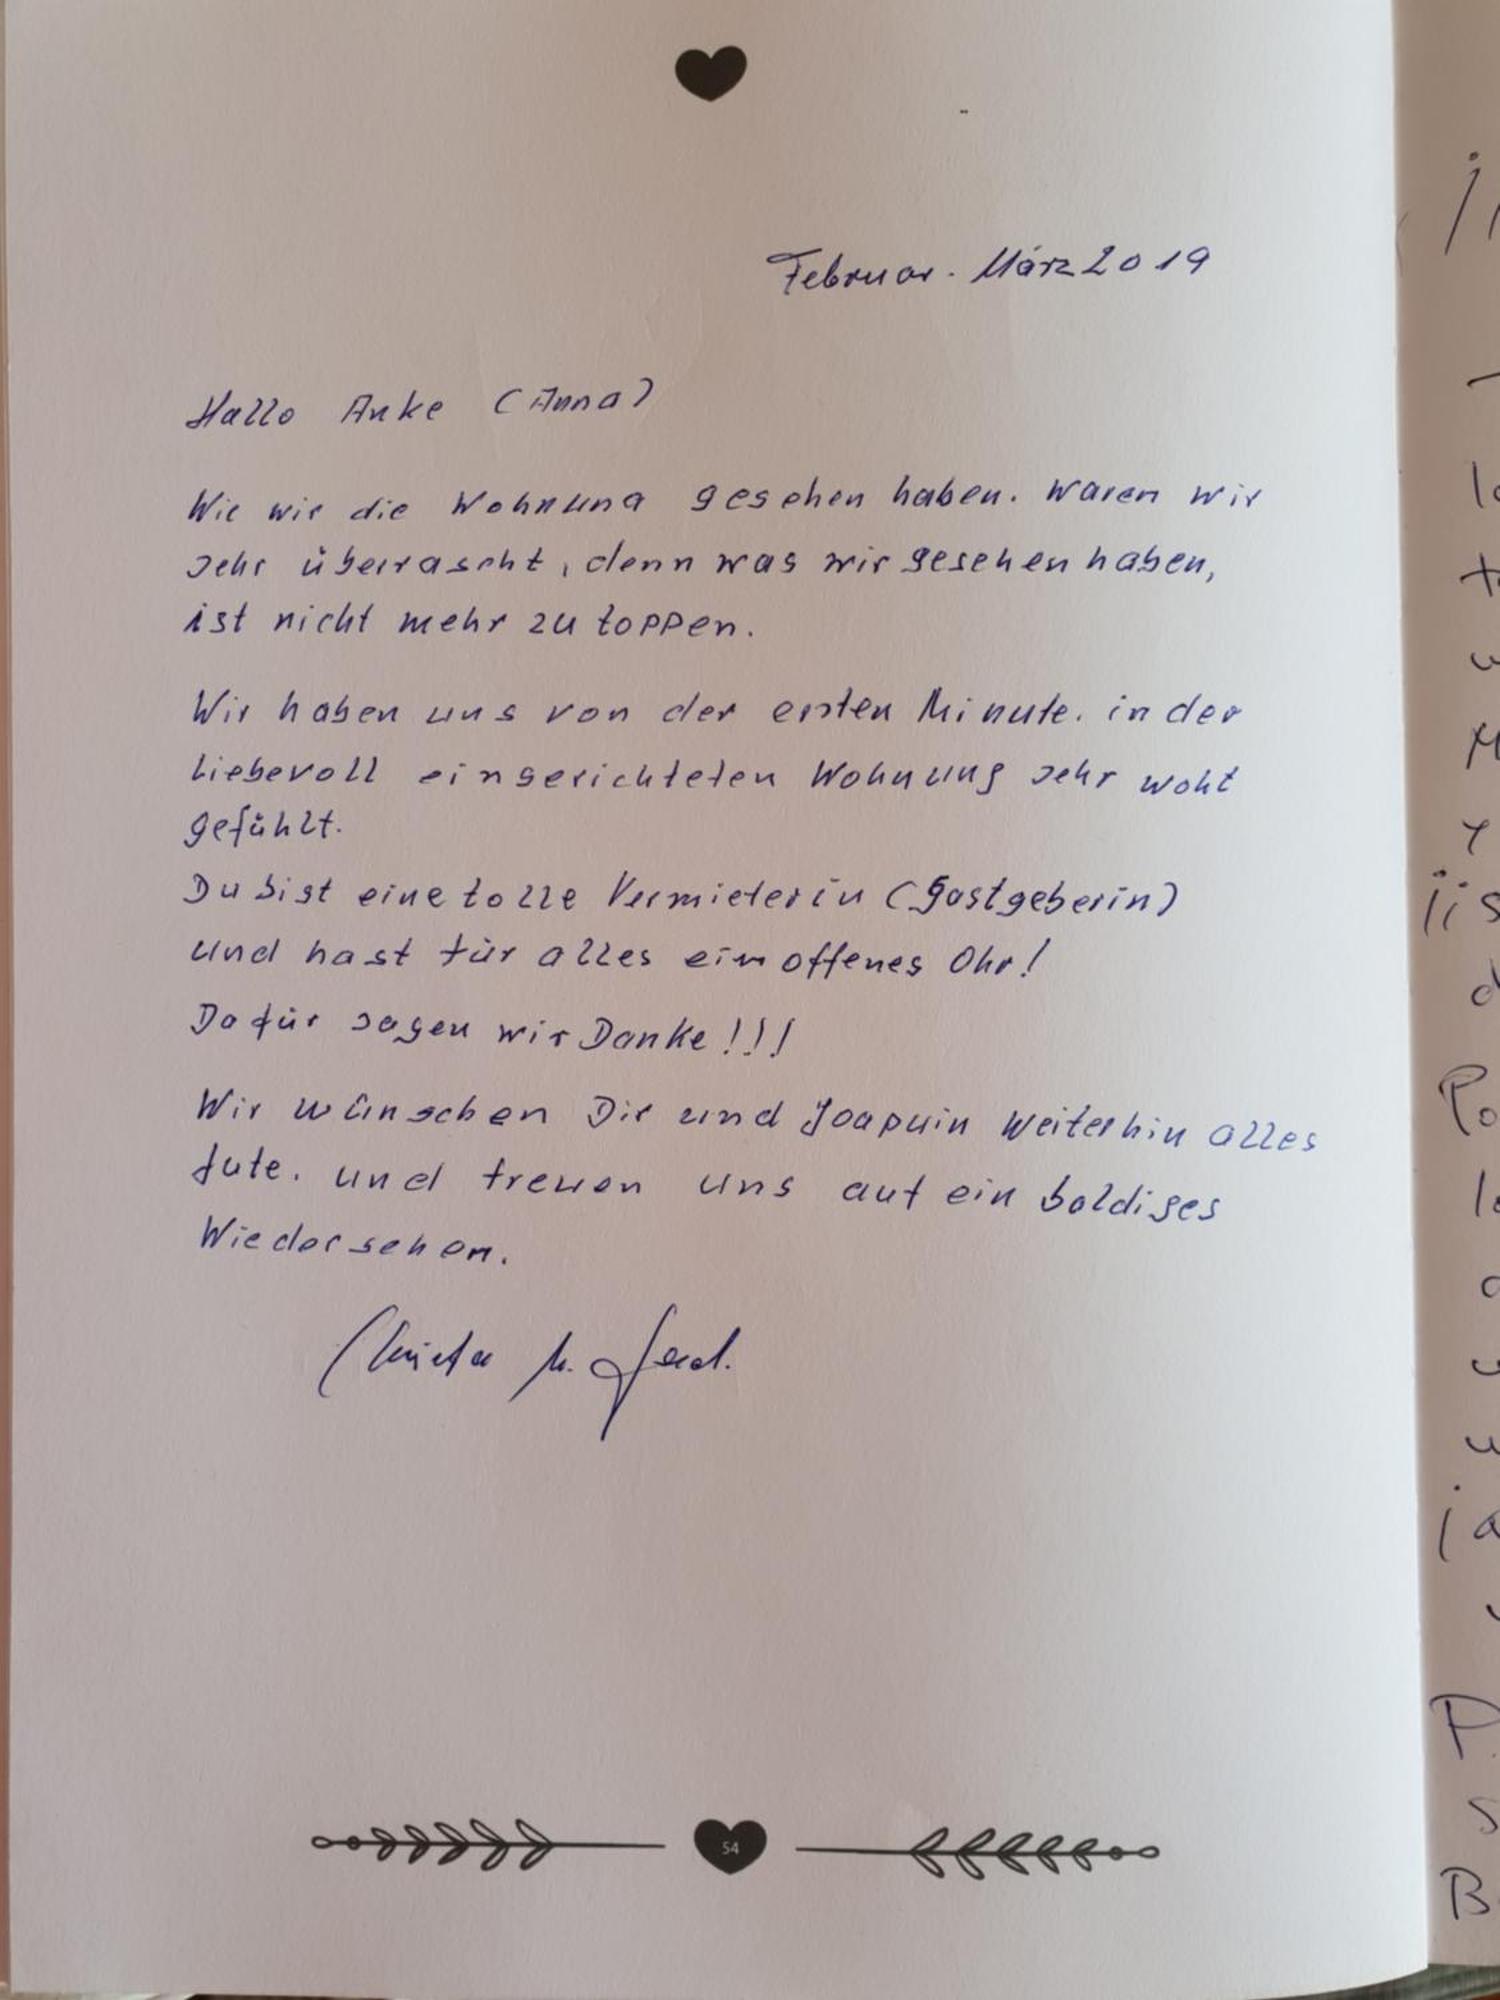 Februar. März 2019
Hallo Anke (Anna)
Wie wir die Wohnung gesehen haben. waren wir
sehr überrascht, denn was wir gesehen haben,
ist nicht mehr zu toppen.
Wir haben uns von der ersten Minute. in der
liebevoll eingerichteten Wohnung sehr wohl
gefühlt.
Du bist eine tolle Vermieterin (Gastgeberin)
und hast für alles ein offenes Ohr!
Dafür sagen wir Danke!!!
Wir wünschen Dir und Joaquin weiterhin alles
gute. und freuen uns auf ein baldiges
Wiedersehen.
Christa u.
54